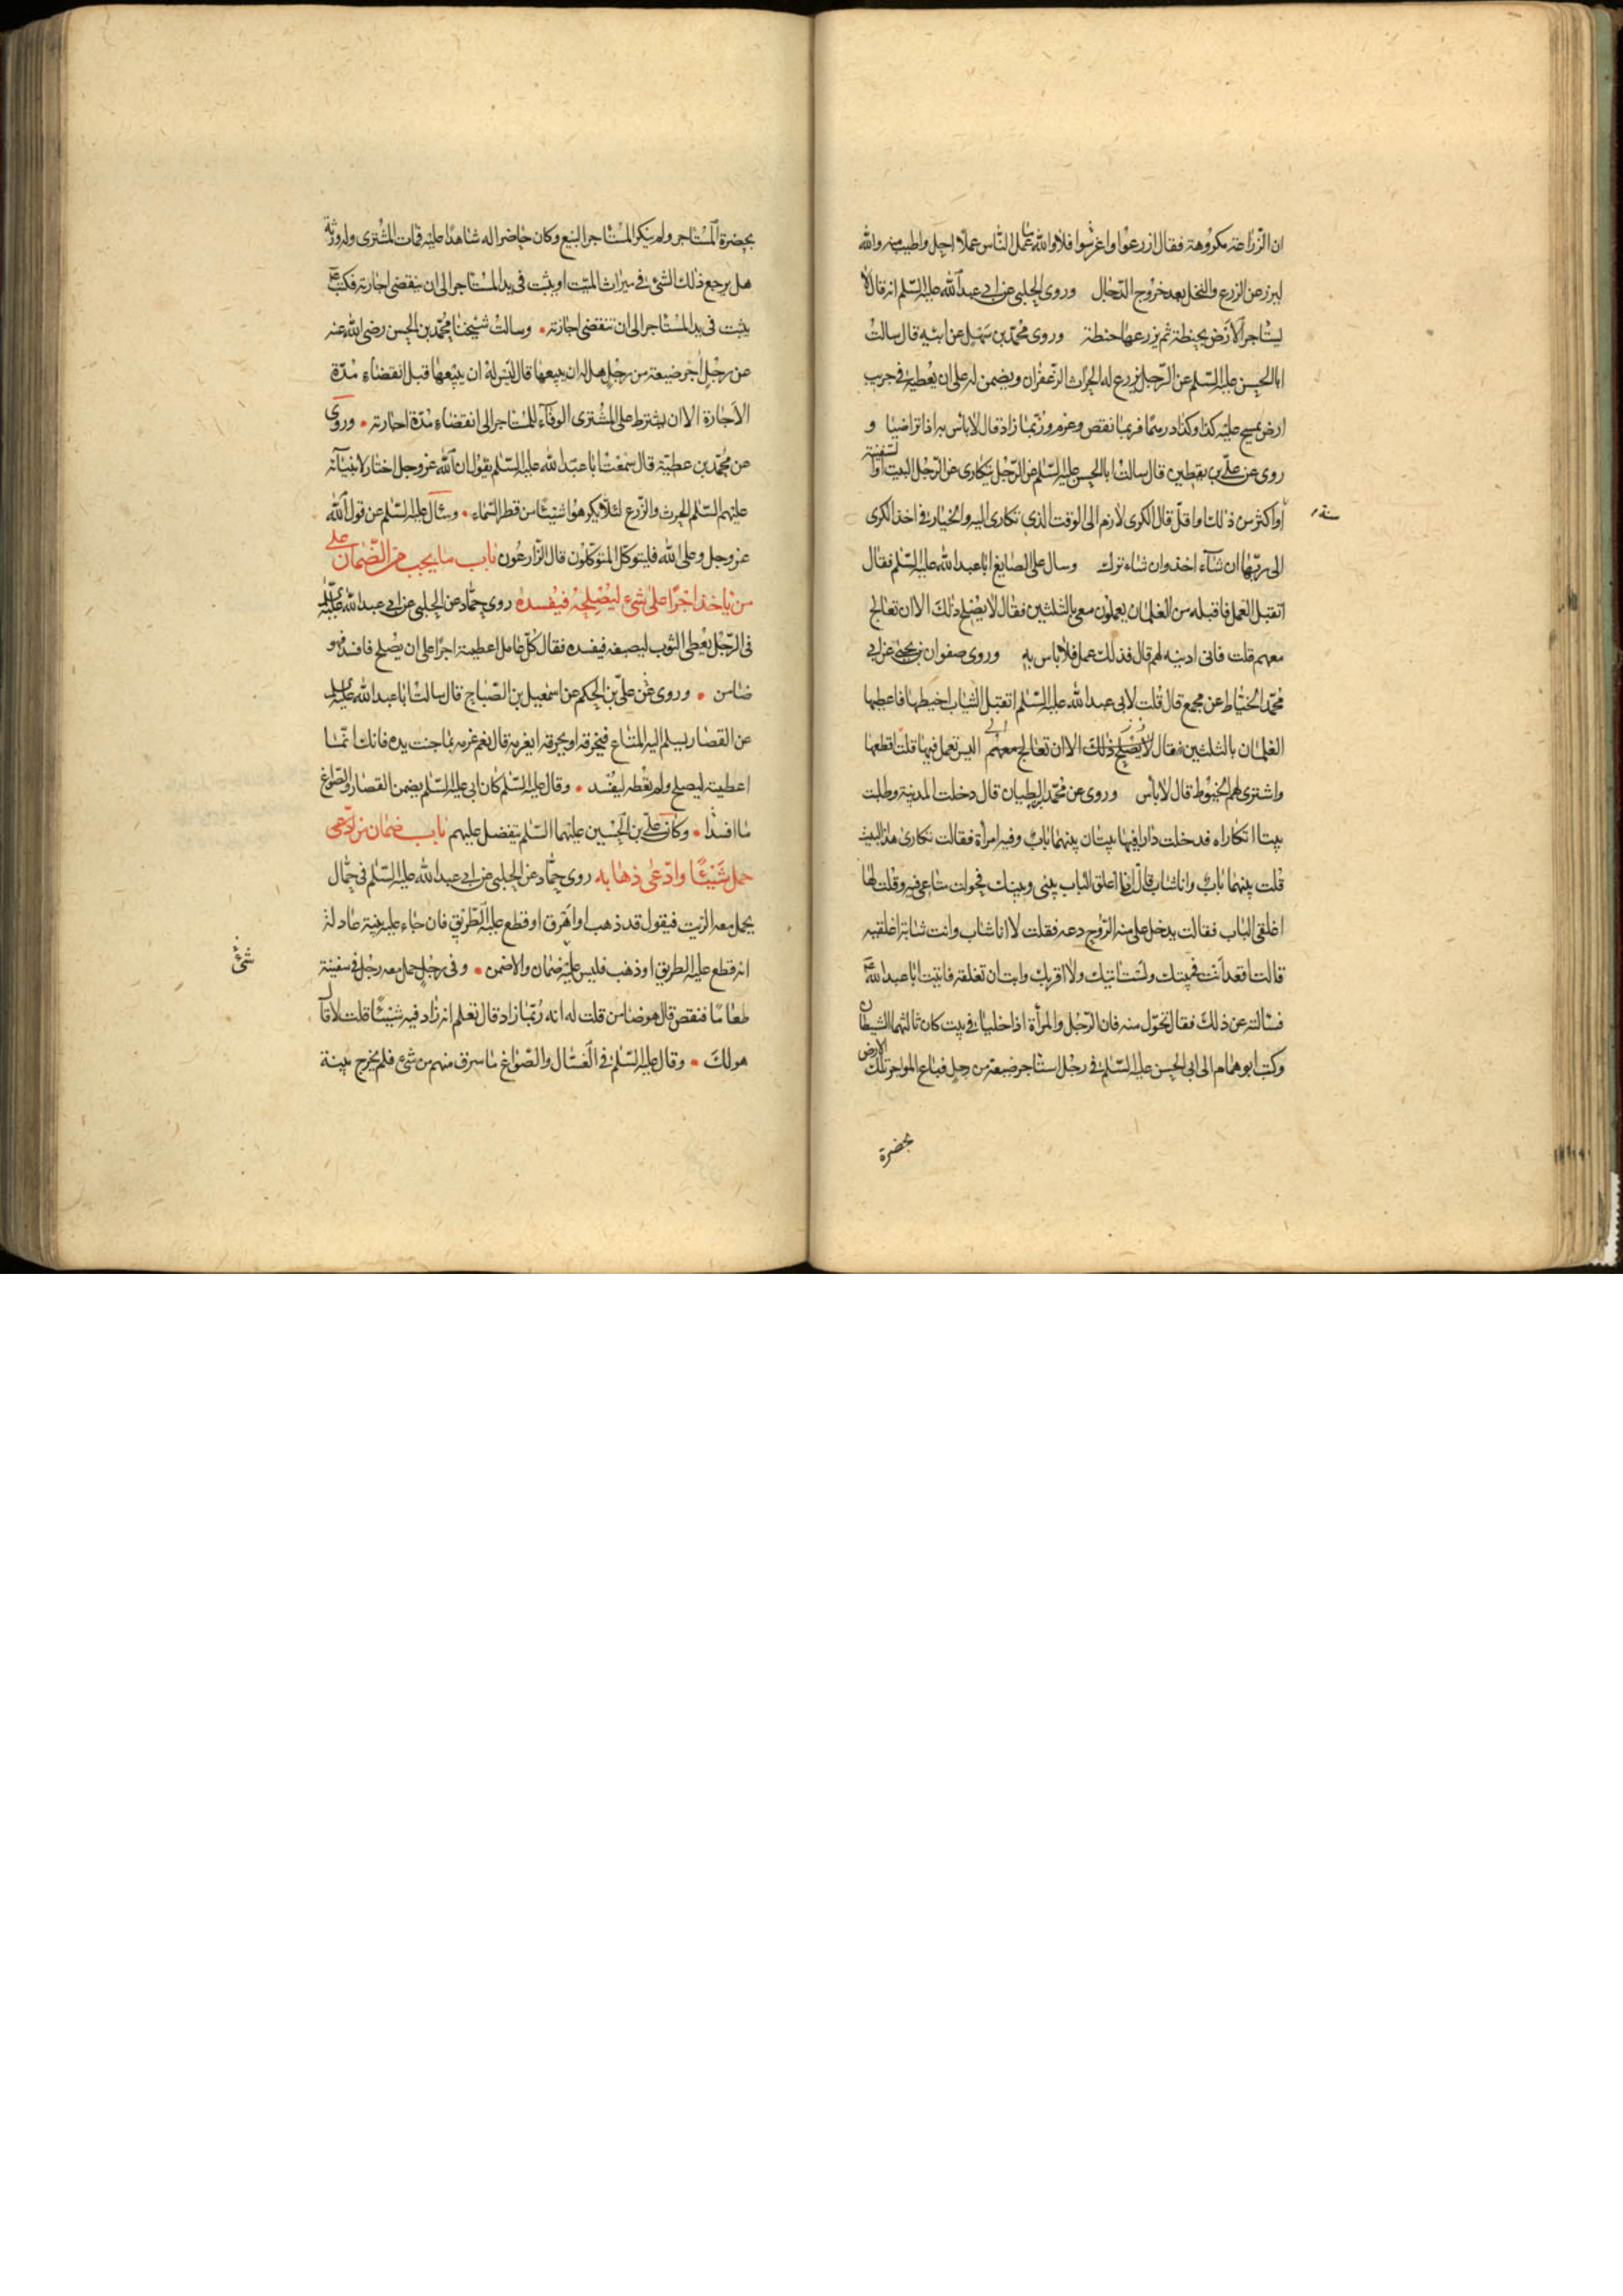 ان الزراعة مكروهة فقال ازرعوا واغرسوا فلا والله ما عمل الناس عملا احل واطيب منه والله
ليزرعن الزرع والنخل بعد خروج الدجال وروى الحلبي عن ابي عبدالله عليه السلم انه قال لا
يستاجر الارض بحنطة ثم يزرعها حنطة وروى محمد بن سهل عن ابيه قال سالت
ابا الحسن عليه السلم عن الرجل يزرع له الحراث الزعفران ويضمن له على ان يعطيه في جريب
ارض يمسح عليه كذا وكذا درهما فربما نقص وغرم وربما زاد قال لا باس به اذا تراضيا و
روى عن علي بن يقطين قال سالت ابا الحسن عليه السلم عن الرجل يتكارى عن الرجل البيت او السفينة
سنة
او اكثر من ذلك او اقل قال الكرى لازم الى الوقت الذي تكارى اليه والخيار في اخذ الكرى
الى ربها ان شاء اخذ وان شاء ترك وسال علي الصايغ ابا عبدالله عليه السلم فقال
اتقبل العمل فاقبله من الغلمان يعملون معي بالثلثين فقال لا يصلح ذلك الا ان تعالج
معهم قلت فاني اذيبه لهم قال فذلك عمل فلا باس به وروى صفوان بن يحيى عن ابي
محمد الخياط عن مجمع قال قلت لابي عبدالله عليه السلم اتقبل الثياب اخيطها فاعطيها
الغلمان بالثلثين فقال لا يصلح ذلك الا ان تعالج معهم اليس تعمل فيها قلت اقطعها
واشترى لهم الخيوط قال لا باس وروى عن محمد الطيان قال دخلت المدينة وطلبت
بيتا اتكاراه فدخلت دارا فيها بيتان بينهما باب وفيه امراة فقالت تكارى هذا البيت
قلت بينهما باب وانا شاب قالت انا اغلق الباب بيني وبينك فحولت متاعي فيه وقلت لها
اغلقي الباب فقالت يدخل علي منه الروح دعه فقلت لا انا شاب وانت شابة اغلقيه
قالت اقعد انت في بيتك ولست اتيك ولا اقربك وابت ان تغلقه فاتيت ابا عبدالله ع
فسالته عن ذلك فقال تحول منه فان الرجل والمراة اذا خليا في بيت كان ثالثهما الشيطان
وكتب ابو همام الى ابي الحسن عليه السلم في رجل استاجر ضيعة من رجل فباع المواجر تلك الارض
بحضرة
بحضرة المستاجر ولم ينكر المستاجر البيع وكان حاضرا له شاهدا عليه فمات المشترى وله ورثة
هل يرجع ذلك الشئ في ميراث الميت او يثبت في يد المستاجر الى ان ينقضي اجارته فكتب ع
يثبت في يد المستاجر الى ان تنقضي اجازته وسالت شيخنا محمد بن الحسن رضي الله عنه
عن رجل اجر ضيعته من رجل هل له ان يبيعها قال ليس له ان يبيعها قبل انقضاء مدة
الاجارة الا ان يشترط على المشترى الوفاء للمستاجر الى انقضاء مدة اجارته وروى
عن محمد بن عطية قال سمعت ابا عبد الله عليه السلم يقول ان الله عز وجل اختار لانبيائه
عليهم السلم الحرث والزرع لئلا يكرهوا شيئا من قطر السماء وسئل عليه السلم عن قول الله
عز وجل وعلى الله فليتوكل المتوكلون قال الزارعون باب ما يجب من الضمان على
من ياخذ اجرا على شئ ليصلحه فيفسده روى حماد عن الحلبي عن ابي عبد الله عليه السلم
في الرجل يعطي الثوب ليصبغه فيفسده فقال كل عامل اعطيته اجرا على ان يصلح فافسد فهو
ضامن وروى عن علي بن الحكم عن اسمعيل بن الصباح قال سالت ابا عبد الله عليه السلم
عن القصار يسلم اليه المتاع فيخرقه او يحرقه ايغرمه قال نعم غرمه بما جنت يده فانك انما
اعطيته ليصلح ولم تعطه ليفسد وقال عليه السلم كان ابي عليه السلم يضمن القصار والصواغ
ما افسدا وكان علي بن الحسين عليهما السلم يتفضل عليهم باب ضمان من ادعى
حمل شيئا وادعى ذهابه روى حماد عن الحلبي عن ابي عبد الله عليه السلم في جمال
يحمل معه الزيت فيقول قد ذهب او اهرق او قطع عليه الطريق فان جاء عليه ببينة عادلة
شئ
انه قطع عليه الطريق او ذهب فليس عليه ضمان والا ضمن وفي رجل حمل معه رجل في سفينة
طعاما فنقص قال هو ضامن قلت له انه ربما زاد قال تعلم انه زاد فيه شيئا قلت لا قال
هو لك وقال عليه السلم في الغسال والصواغ ما سرق منهم من شئ فلم يخرج بينة